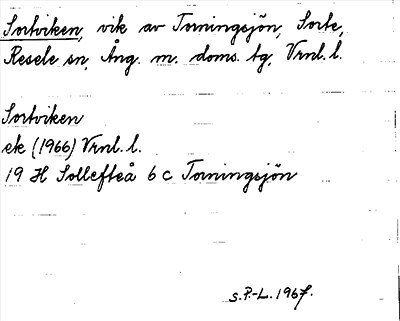 Sortviken, vik av Torningsjön, Sorte,
Resele sn, Ång. m. doms. tg, Vrnl. l.
Sortviken
ek (1966) Vrnl. l.
19 H Sollefteå 6 c Torningsjön
S.P.-L. 1967.